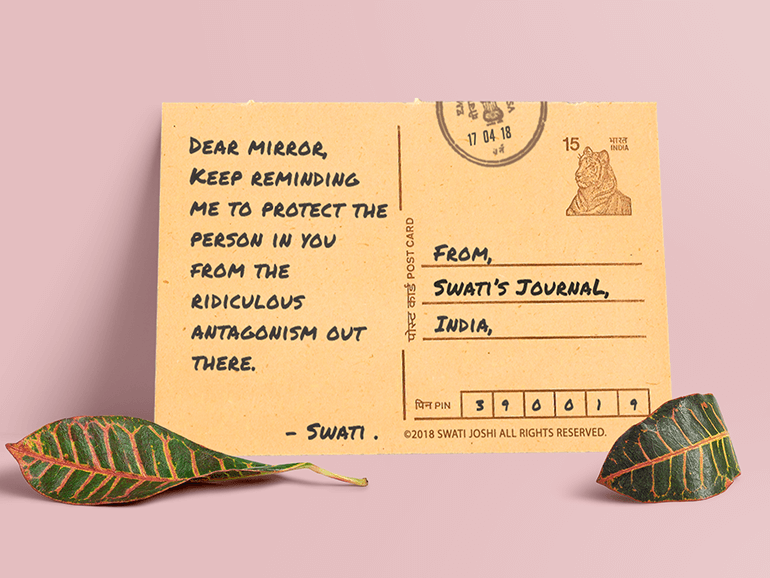 DEAR MIRROR,
KEEP REMINDING
ME TO PROTECT THE
PERSON IN YOU
FROM THE
RIDICULOUS
ANTAGONISM OUT
THERE.
- SWATI .
17 04 18
15 भारत
INDIA
पोस्ट कार्ड POST CARD
FROM,
SWATI'S JOURNAL,
INDIA,
पिन PIN 3 9 0 0 1 9
©2018 SWATI JOSHI ALL RIGHTS RESERVED.